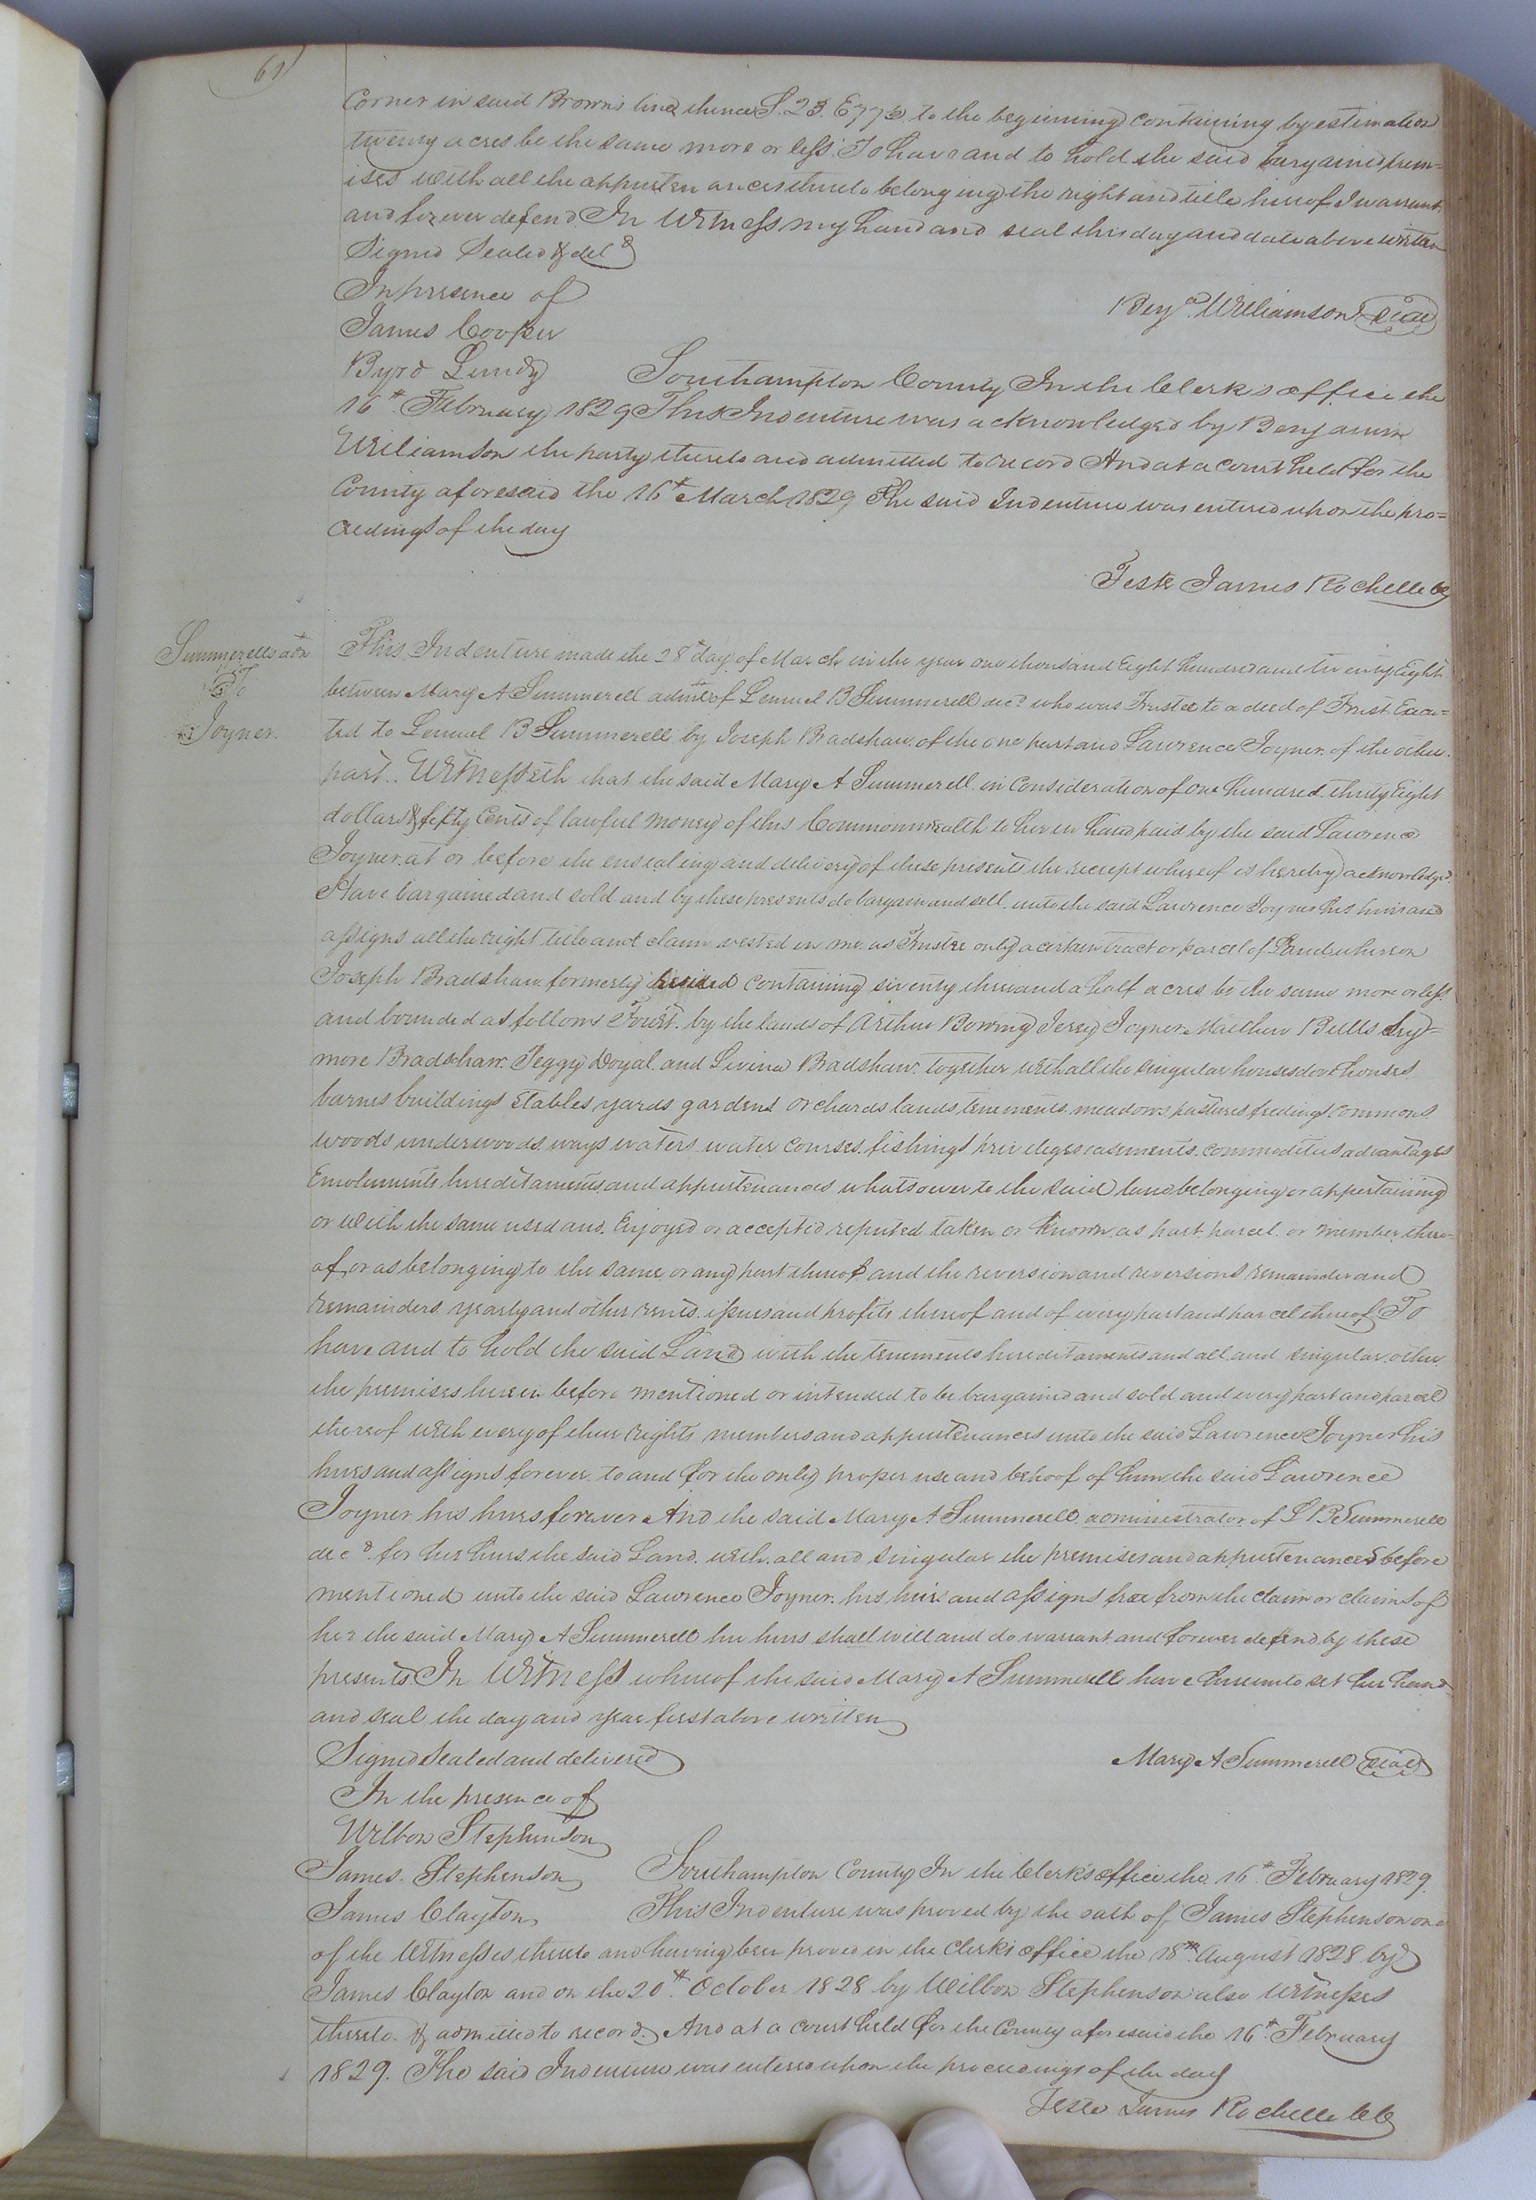 61
Corner in said Browns line thence S. 23. E 773 to the beginning containing by estimation
twenty acres be the same more or less. To have and to hold the said bargained prem=
ises with all the appurten ances thereto belonging the right and title hereof I warrant
and forever defend. In Witness my hand and seal this day and date above written
Signed Sealed & deld
In presence of
Benja. Williamson Seal
James Cooper
Byrd Lundy
Southampton County In the Clerks office the
16th. February 1829 This Indenture was acknowledged by Benjamin
Williamson the party thereto and admitted to record And at a court held for the
County aforesaid the 16th March 1829 The said Indenture was entered upon the pro=
ceedings of the day
Teste James Rochelle Cl
Summerells adx
To
Joyner.
This Indenture made the 28th day of March in the year one thousand Eight hundred and twenty Eight
between Mary A Summerell admx of Lemuel B Summerell decd who was Trustee to a deed of Trust Execu=
ted to Lemuel B Summerell by Joseph Bradshaw of the one part and Lawrence Joyner of the other
part. Witnesseth that the said Mary A Summerell in Consideration of one hundred thirty Eight
dollars & fifty Cents of lawful money of this Commonwealth to her in hand paid by the said Lawrence
Joyner at or before the ensealing and delivery of these presents the receipt whereof is hereby acknowledged
Have bargained and sold and by these presents do bargain and sell unto the said Lawrence Joyner his heirs and
assigns all the right title and claim vested in me as Trustee only a certain tract or parcel of Land whereon
Joseph Bradshaw formerly resided containing seventy three and a half acres be the same more or less
and bounded as follows by the lands of Arthur Bowing Jerry Joyner Mathew Bulls
more Bradshaw. Peggy Doyal and Levina Bradshaw together with all the singular houses dove houses
barnes buildings Stables yards gardens orchards lands tenements. meadows pastures feedings Commons
woods underwoods ways waters water courses. fishings priveleges easements. commodities advantages
Emoluments hereditaments and appurtenances whatsoever to the said land belonging or appertaining
or with the same used and Enjoyed or accepted reputed taken or known as part parcel or member there=
of or as belonging to the same or any part thereof and the reversion and reversions remainder and
remainders. yearly and other rents. issues and profits thereof and of every part and parcel thereof To
have and to hold the said Land with the tenements hereditaments and all and singular other
the premises herein before mentioned or intended to be bargained and sold and every part and parcel
thereof with every of their rights members and appurtenances unto the said Lawrence Joyner his
heirs and assigns forever to and for the only proper use and behoof of him the said Lawrence
Joyner his heirs forever And the said Mary A Summerell administrator of L B Summerell
decd. for her heirs the said Land. with all and Singular the premises and appurtenances before
mentioned unto the said Lawrence Joyner. his heirs and assigns free from the claim or claims of
her the said Mary A Summerell her heirs shall will and do warrant and forever defend by these
presents In Witness whereof the said Mary A Summerell have hereunto set her hand
and seal the day and year first above written
Signed Sealed and delivered
Mary A Summerell Seal
In the presence of
Wilbon Stephenson
James. Stephenson
James Clayton
Southampton County In the Clerks office the 16th. February 1829.
This Indenture was proved by the oath of James Stephenson one
of the Witnesses thereto and having been proved in the Clerks office the 18th August 1828 by
James Clayton and on the 20th. October 1828 by Wilbon Stephenson also Witnesses
thereto. & admitted to record. And at a court held for the County aforesaid the 16th. February
1829. The said Indenture was entered upon the proceedings of the day
Teste James Rochelle Cl